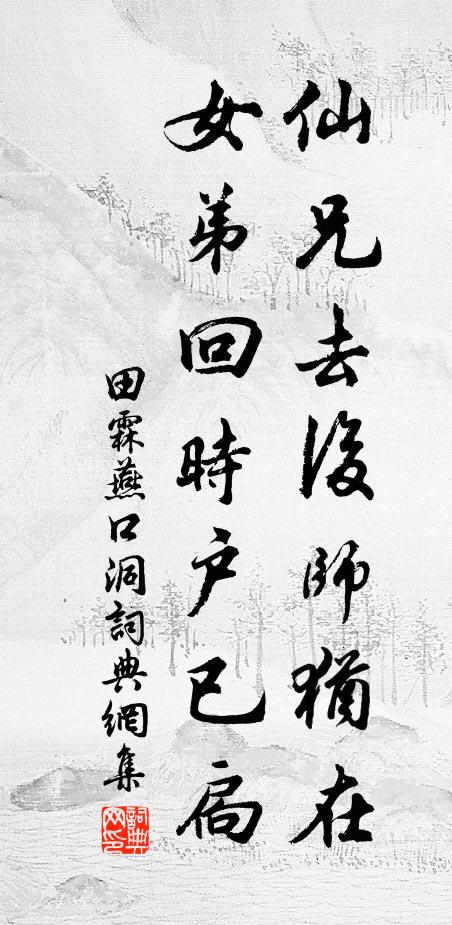 仙兄去後師猶在
女弟回時户已扃
田霖燕口洞詞典網集
詞典網印